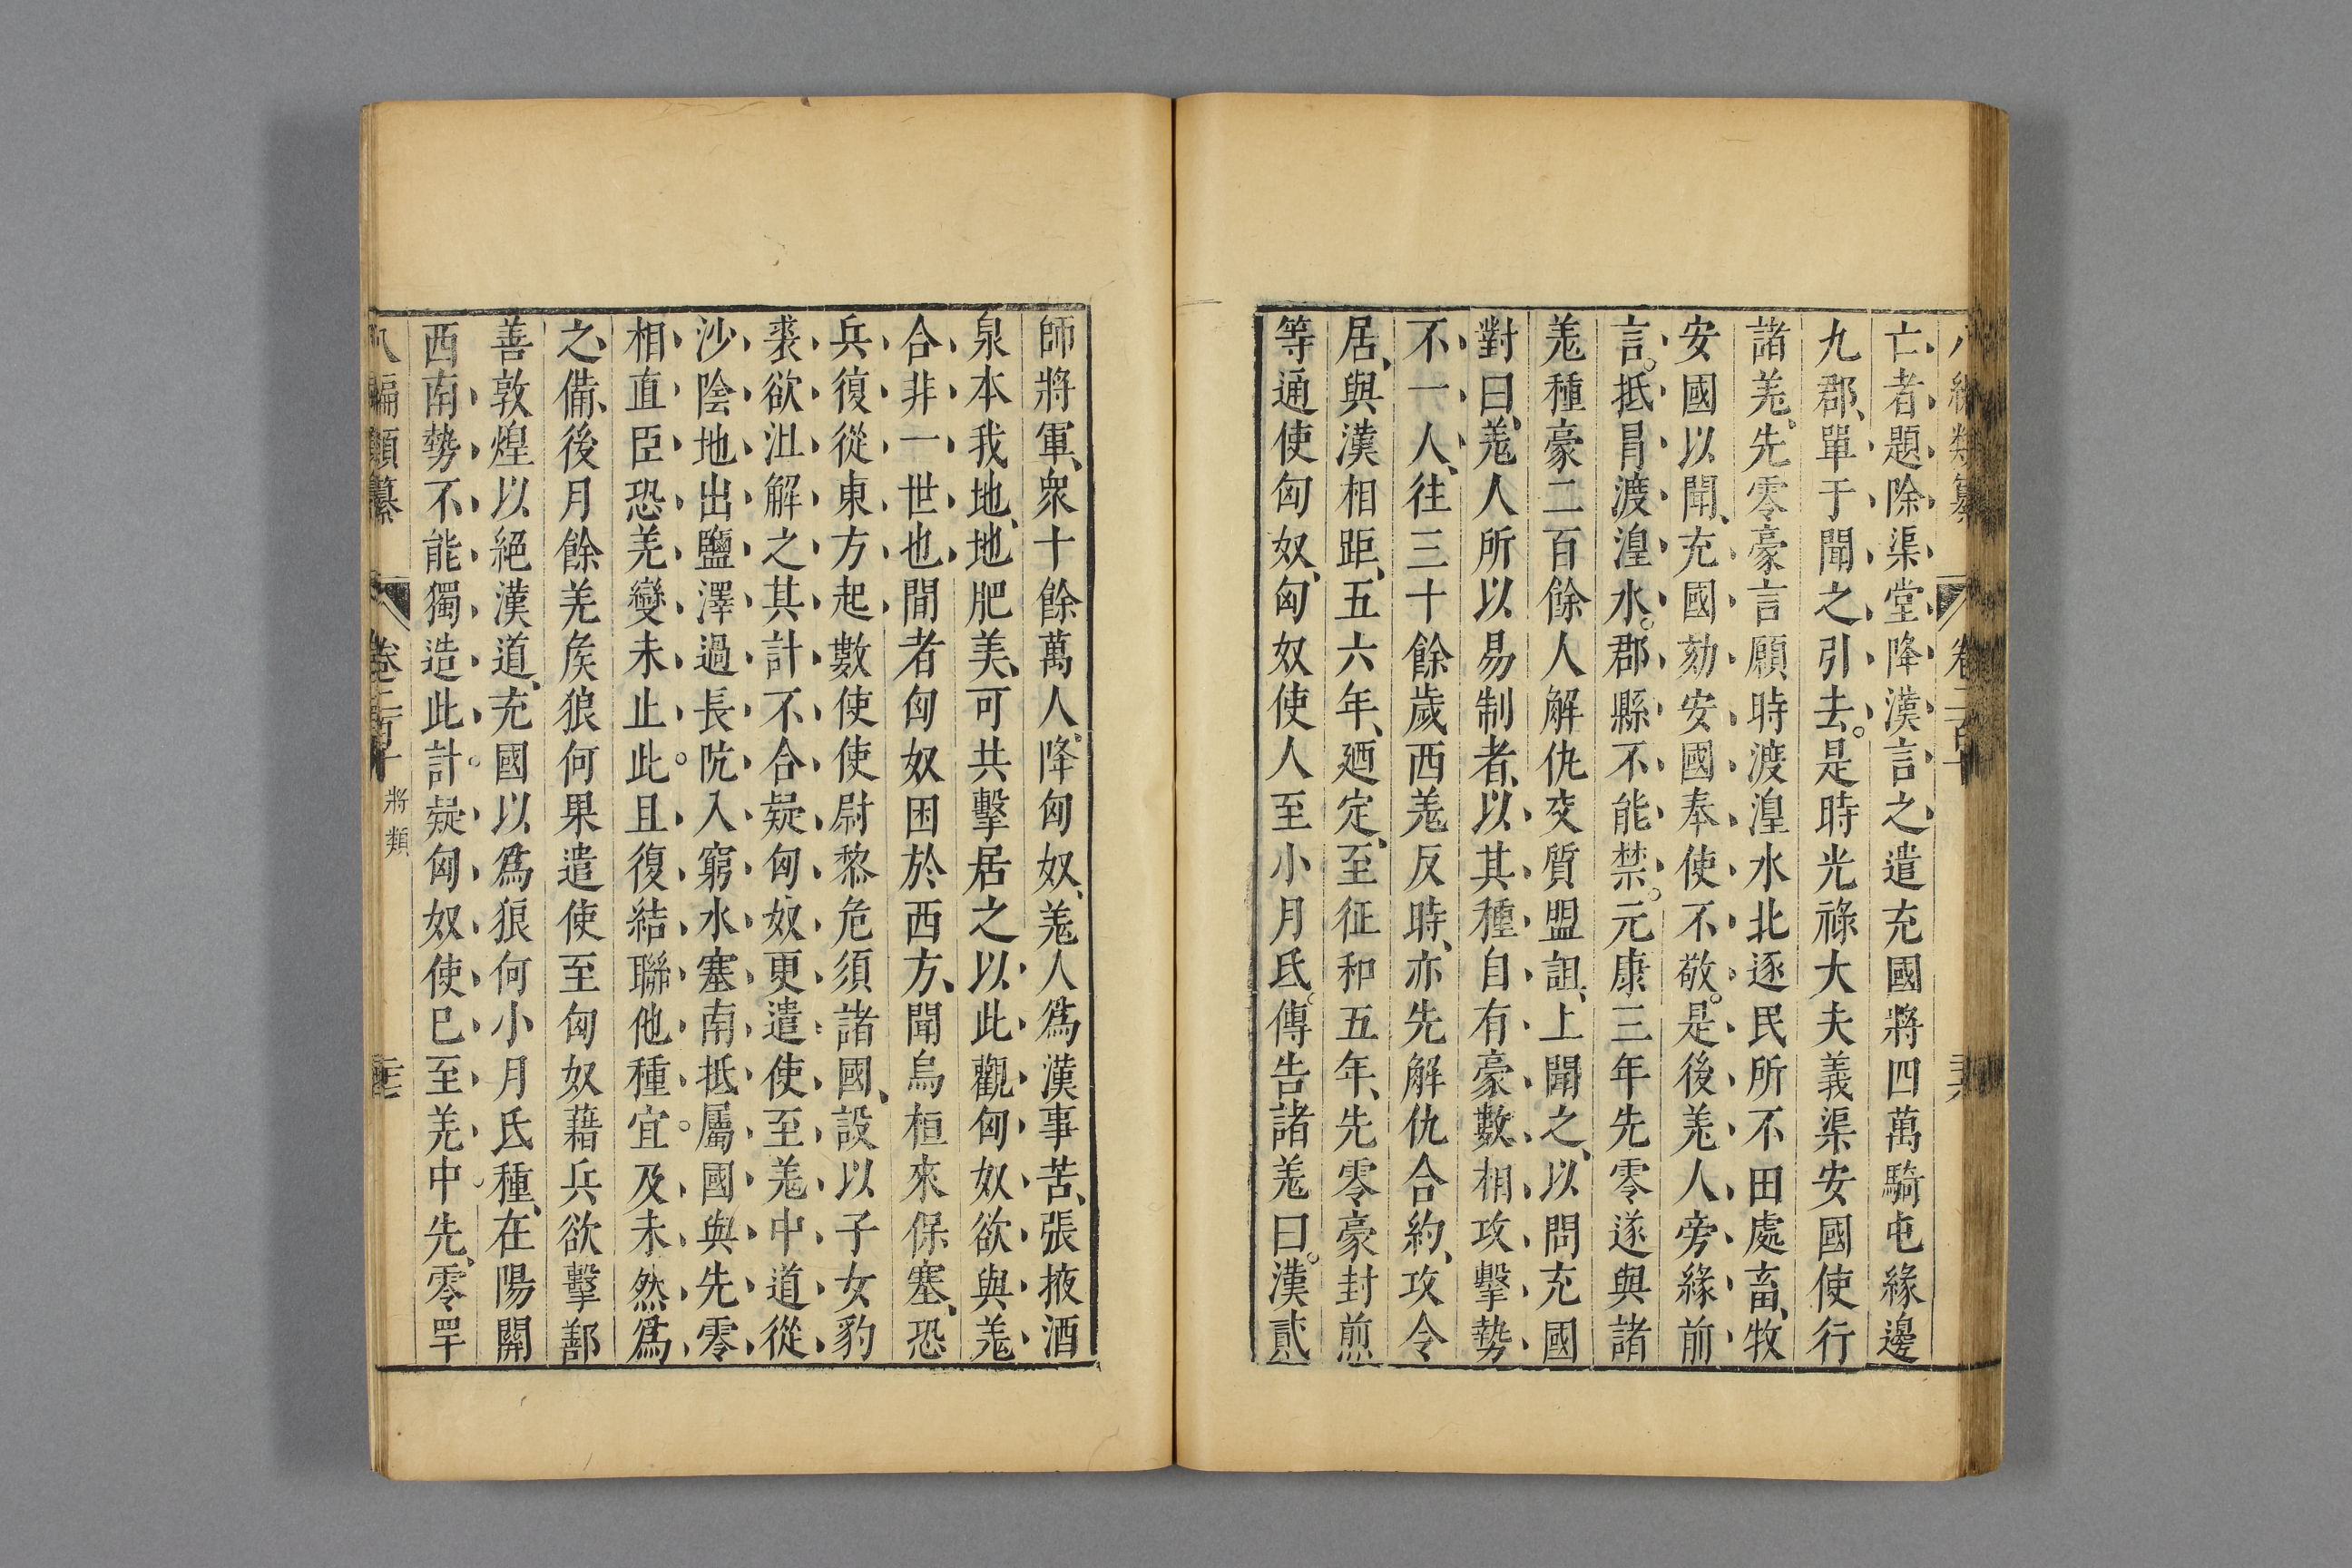 亡者題除渠堂降漢言之遣充國將四萬騎屯緣邊
九郡、單于聞之引去。是時光祿大夫義渠安國使行
諸羌。先零豪言願時渡湟水北逐民所不田處畜、牧
安國以聞、充國劾安國奉使不敬。是後羌人旁緣前
言。抵冐渡湟水。郡縣不能禁。元康三年先零遂與諸
羌種豪二百餘人解仇交質盟詛、上聞之、以問充國
對曰、羌人所以易制者、以其種自有豪數相攻擊勢
不一人、往三十餘歲西羌反時、亦先解仇合約、攻令
居、與漢相距、五六年、廼定、至征和五年、先零豪封煎
等通使匈奴、匈奴使人至小月氏。傳告諸羌曰。漢貳
師將軍、衆十餘萬人。降匈奴、羌人爲漢事苦、張掖酒
泉本我地、地肥美、可共擊居之以此觀匈奴欲與羌
合非一世也間者匈奴困於西方、聞烏桓來保塞、恐
兵復從東方起數使使尉黎危須諸國、設以子女豹
裘欲沮解之其計不合疑匈奴更遣使至羌中道從
沙陰地出鹽澤過長阬入窮水塞南抵屬國與先零
相直臣恐羌變未止此。且復結聯他種。宜及未然爲
之、備、後月餘羌矦狼何果遣使至匈奴藉兵欲擊鄯
善敦煌以絕漢道、充國以爲狼何小月氏種、在陽關
西南勢不能獨造此計。疑匈奴使已至羌中先、零䍐
八編類纂
卷二百十
將類